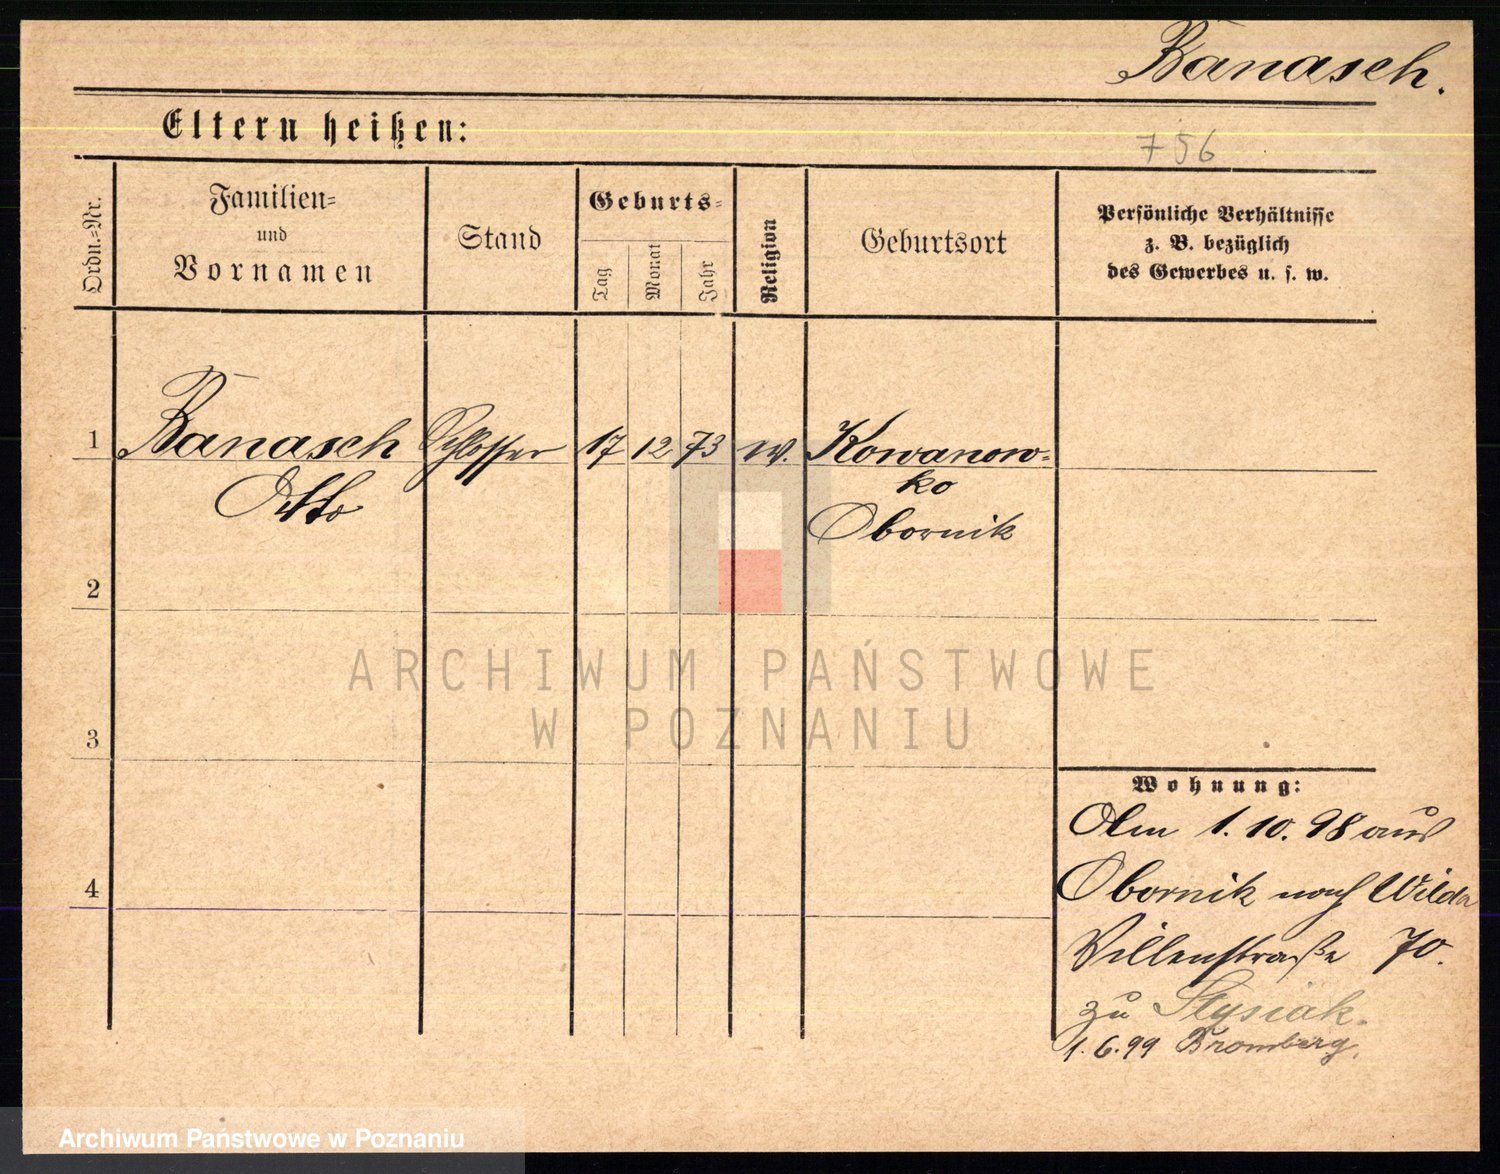 Banasch.
Eltern heißen:
756
Ordn.-Nr.
Familien-
und
Vornamen
Stand
Geburts-
Tag
Monat
Jahr
Religion
Geburtsort
Persönliche Verhältnisse
z. B. bezüglich
des Gewerbes u. s. w.
1
Banasch
Otto
Schlosser
17
12
73
Kowanow-
ko
Obornik
2
3
4
ARCHIWUM PAŃSTWOWE
W POZNANIU
Wohnung:
1. 10. 98 aus
Obornik nach Wilda
Villenstraße 70.
zu Stysiak.
1. 6. 99 Bromberg.
Archiwum Państwowe w Poznaniu